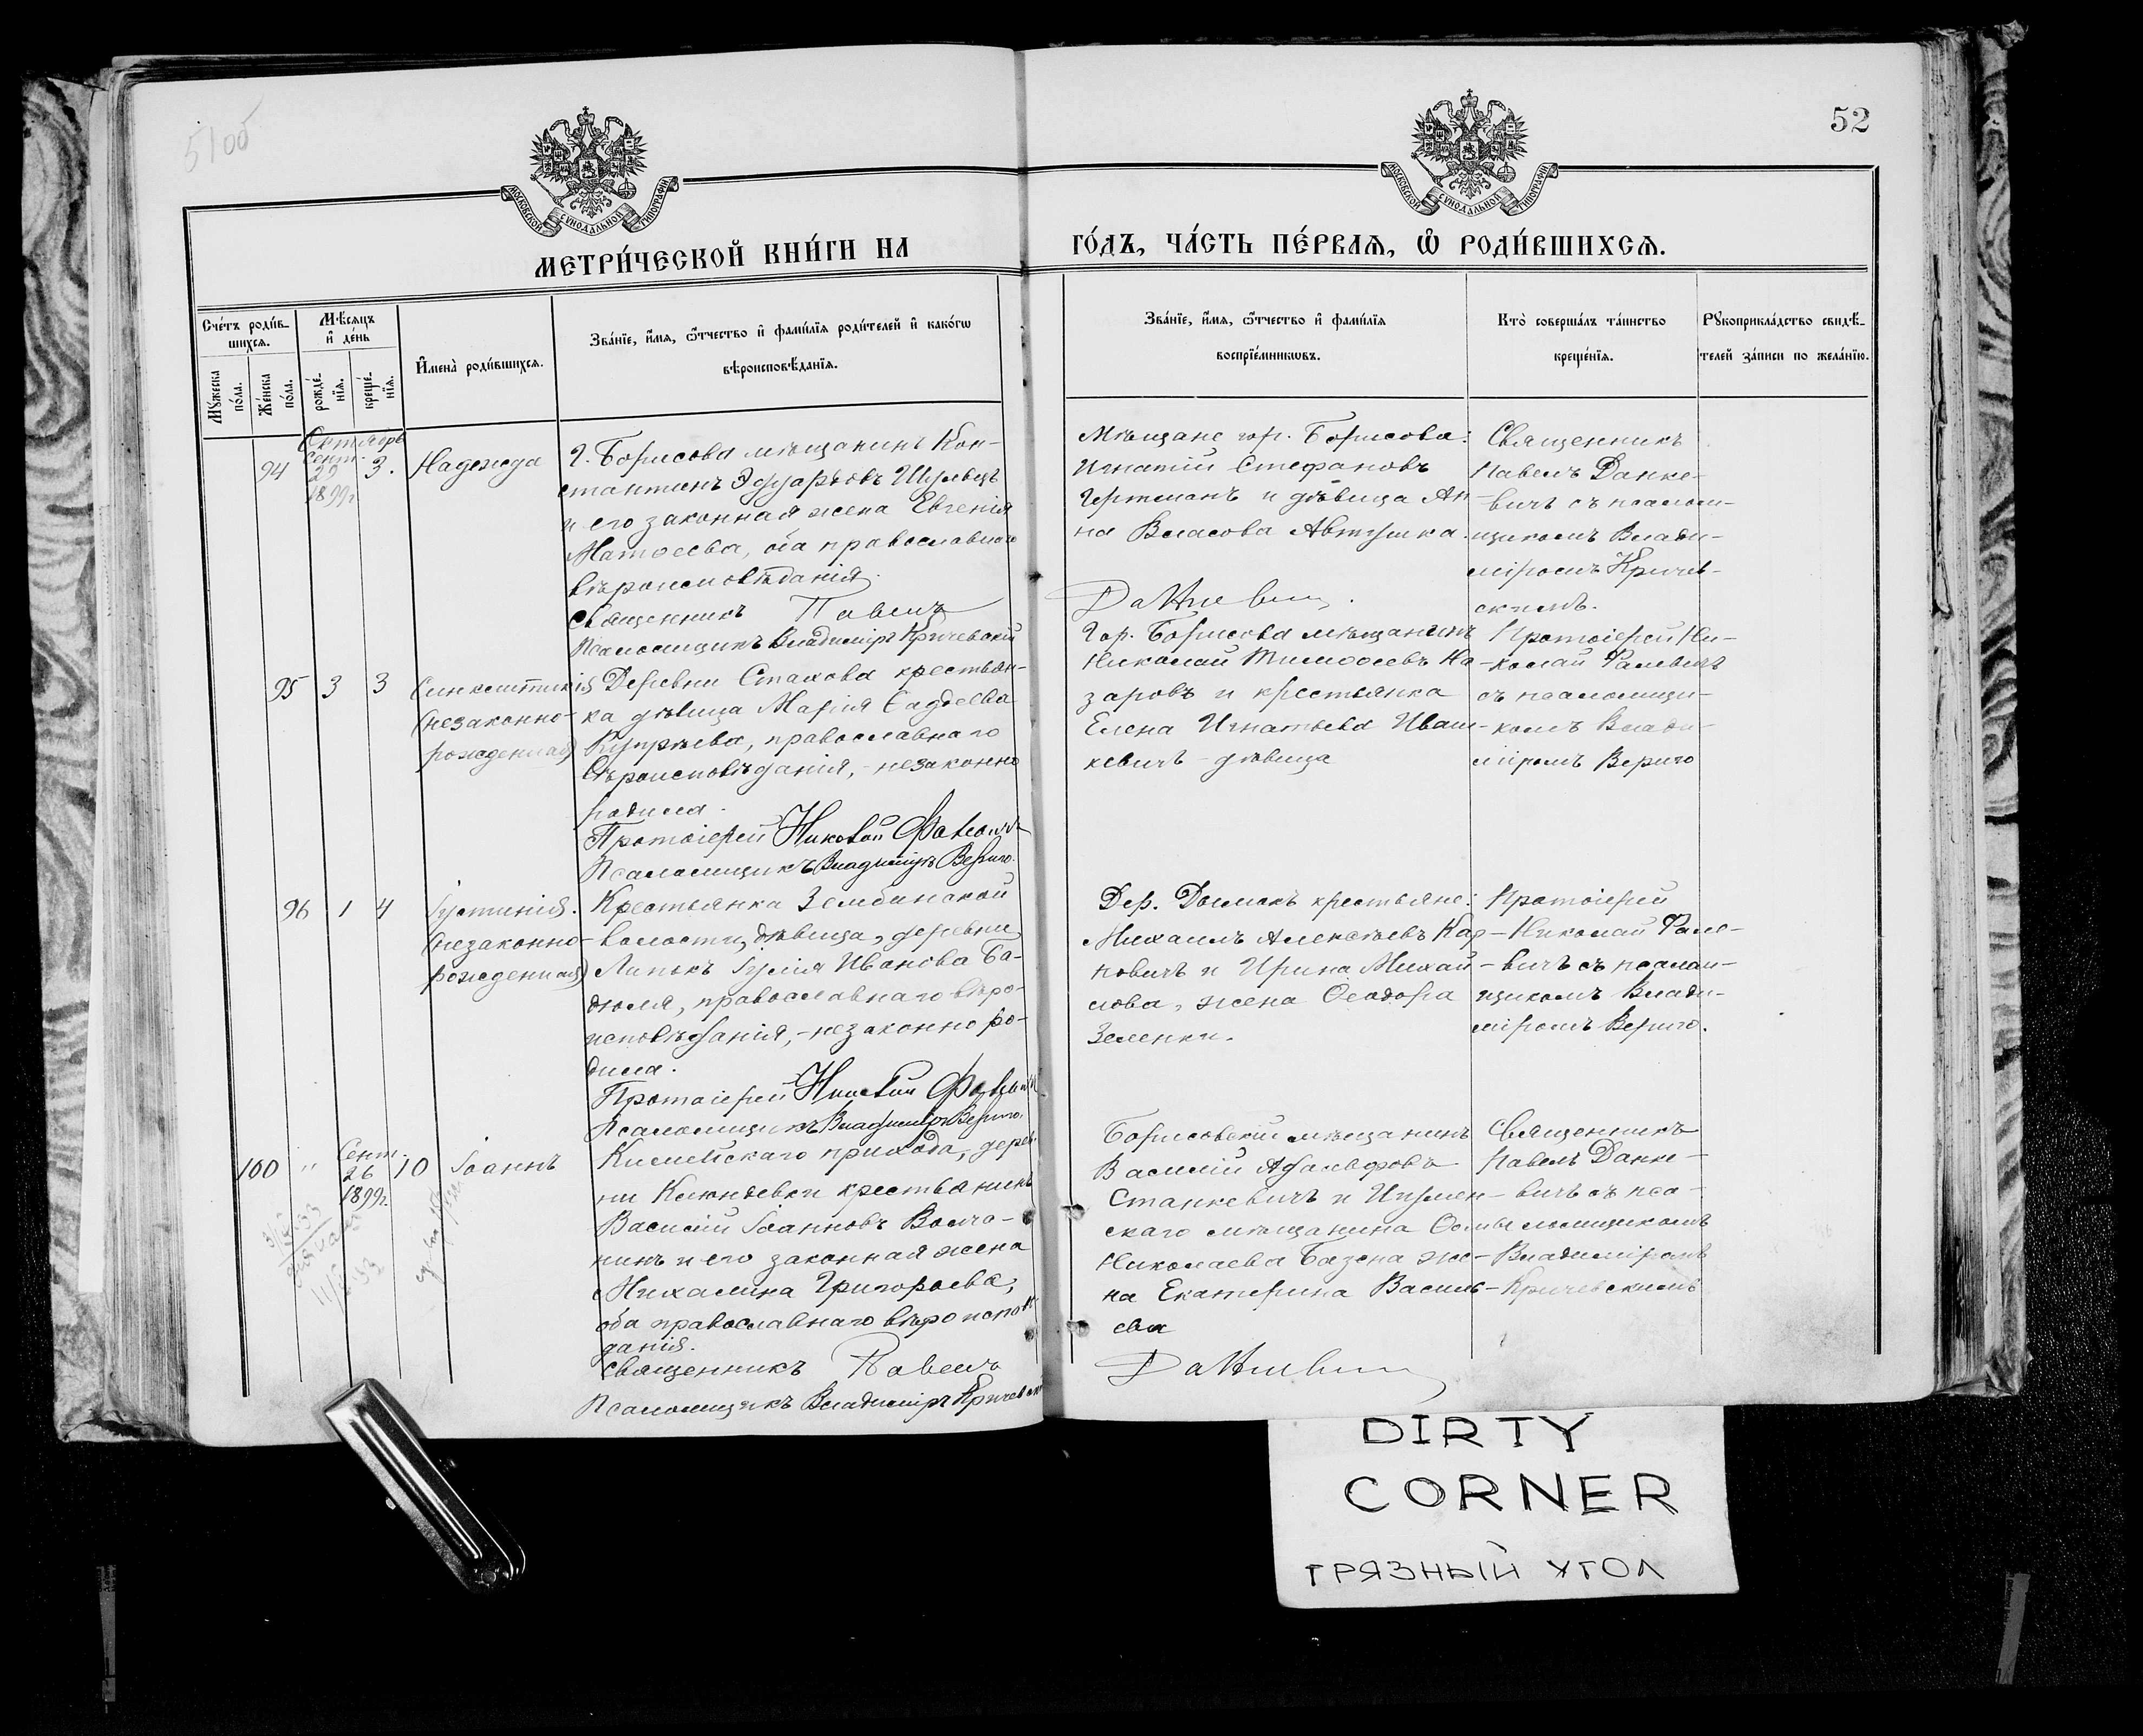 51об
52
МОСКОВСКОЙ СѴНОДАЛЬНОЙ ТИПОГРАФІИ
МОСКОВСКОЙ СѴНОДАЛЬНОЙ ТИПОГРАФІИ
МЕТРИ́ЧЕСКОЙ КНИ́ГИ НА
ГО́ДЪ, ЧА́СТЬ ПЕ́РВАЯ, Ѿ РОДИ́ВШИХСЯ.
Сче́тъ роди́в-
шихся.
Мꙋ́жеска
по́ла.
Же́нска
по́ла.
Мѣ́сяцъ
и де́нь
рожде́-
нїя.
креще́-
нїя.
Имена̀ роди́вшихся.
Зва́нїе, и́мя, ѻ́тчество и фами́лїя роди́телей и како́гѡ
вѣроисповѣ́данїя.
Зва́нїе, и́мя, ѻ́тчество и фами́лїя
воспрїе́мникѡвъ.
Кто̀ соверша́лъ та́инство
креще́нїя.
Рꙋкоприкла́дство свидѣ́-
телей за́писи по жела́нїю.
Октябрь
94
Сент.
29
1899 г.
3.
Надежда
Г. Борисова мѣщанинъ Кон-
стантинъ Эдуардовъ Шульцъ
и его законная жена Евгенія
Матѳеева, оба православнаго
вѣроисповѣданія.
Священникъ Павелъ
Псаломщикъ Владиміръ Кричевскій
Мѣщане гор. Борисова:
Игнатій Стефановъ
Гертманъ и дѣвица Ан-
на Власова Автушка.
Данкевичъ.
Священникъ
Павелъ Данке-
вичъ съ псалом-
щикомъ Влади-
міромъ Кричев-
скимъ.
95
3
3
Синклитикія
(незаконно-
рожденная)
Деревни Стахова крестьян-
ка дѣвица Марія Фаддеева
Купрѣева, православнаго
вѣроисповѣданія, - незаконно
родила.
Протоіерей Николай Фалевичъ
Псаломщикъ Владиміръ Вериго.
Гор. Борисова мѣщанинъ
Николай Тимоѳеевъ На-
заровъ и крестьянка
Елена Игнатьева Иваш-
кевичъ - дѣвица
Протоіерей Ни-
колай Фалевичъ
съ псаломщи-
комъ Влади-
міромъ Вериго
96
1
4
Іустинія.
(незаконно-
рожденная)
Крестьянка Зембинской
волости, дѣвица, деревни
Липокъ Іулія Иванова Ба-
дюля, православнаго вѣро-
исповѣданія, - незаконно ро-
дила.
Протоіерей Николай Фалевичъ
Псаломщикъ Владиміръ Вериго.
Дер. Дымокъ крестьяне:
Михаилъ Алексѣевъ Кар-
повичъ и Ирина Михай-
лова, жена Ѳеодора
Зеленки.
Протоіерей
Николай Фале-
вичъ съ псалом-
щикомъ Влади-
міромъ Вериго.
100
"
Сент.
26
1899 г.
10
Іоаннъ
Кищелскаго прихода, дерев-
ни Клюндевки крестьянинъ
Василій Іоанновъ Волча-
нинъ и его законная жена
Михалина Григорьева,
оба православнаго вѣроисповѣ
данія.
Священникъ Павелъ
Псаломщикъ Владиміръ Кричевскій
Борисовскій мѣщанинъ
Василій Адольфовъ
Станкевичъ и Игумен-
скаго мѣщанина Ѳомы
Николаева Базена же-
на Екатерина Василь-
ева
Данкевичъ
Священникъ
Павелъ Данке-
вичъ съ пса-
ломщикомъ
Владиміромъ
Кричевскимъ
DIRTY
CORNER
ГРЯЗНЫЙ УГОЛ